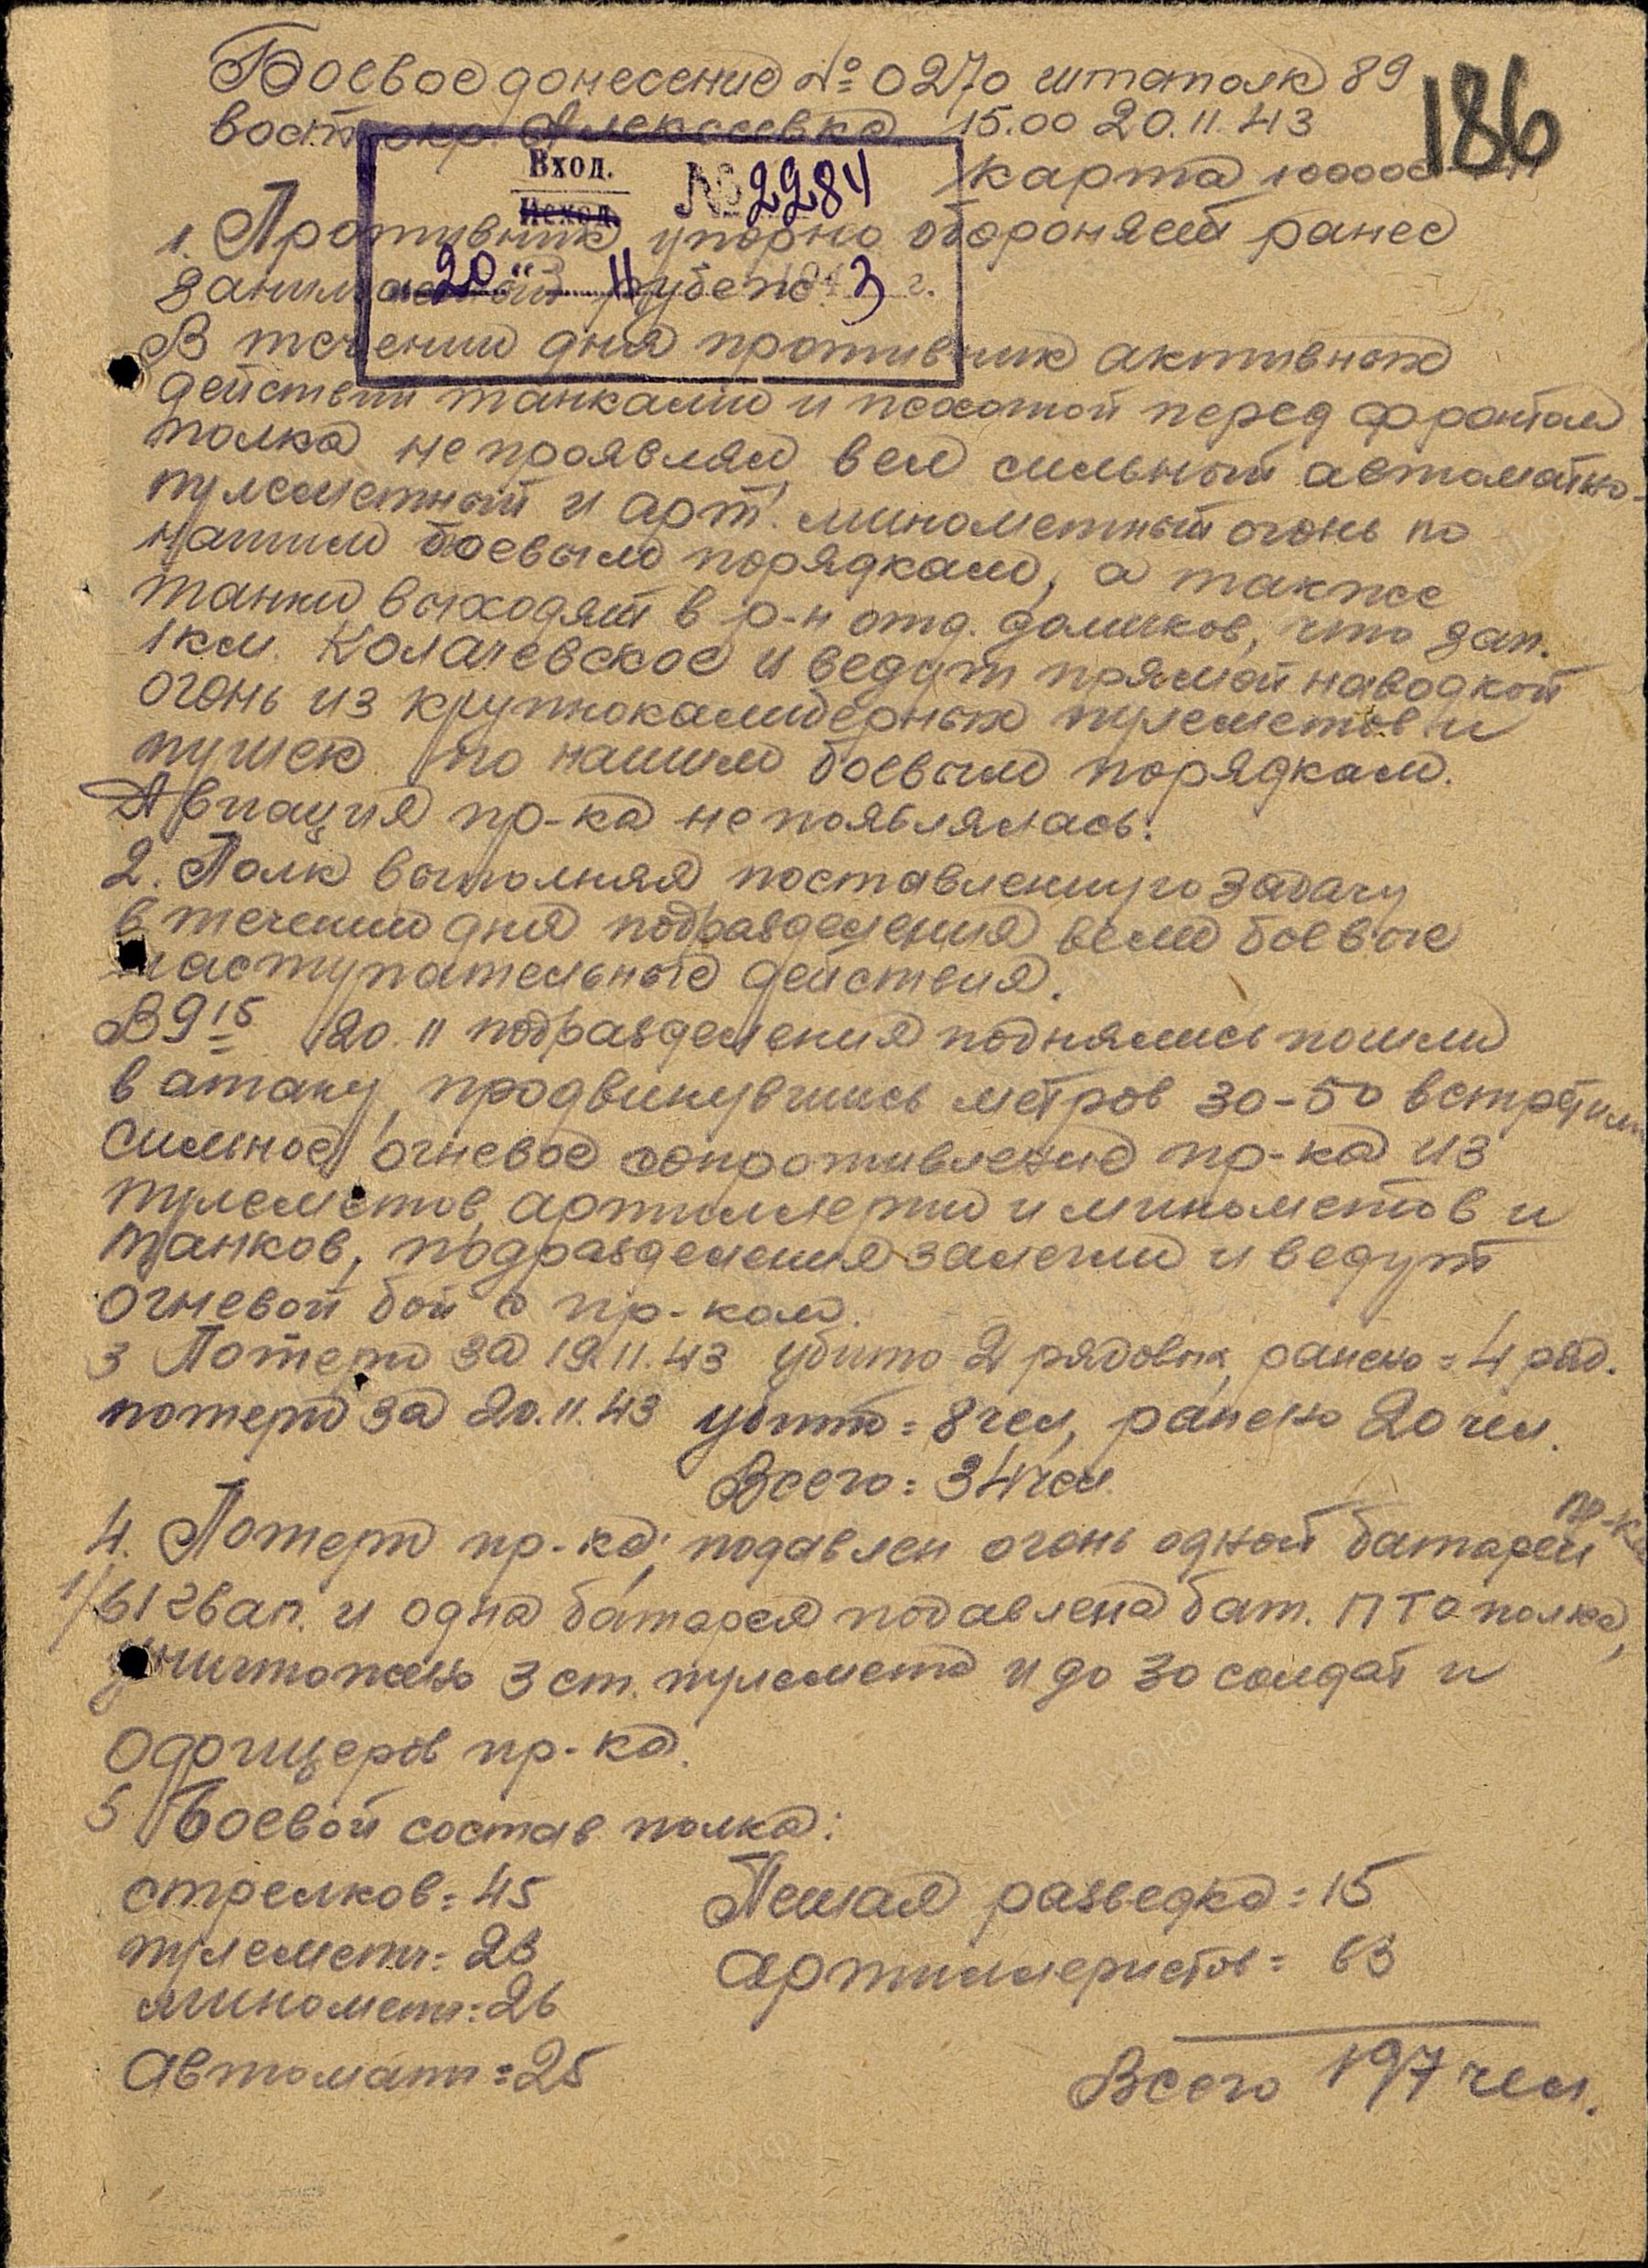 Боевое донесение № 0270 штаполк 89
186
вост. окр. Алексеевка 15.00 20.11.43
Вход. № 2284
карта 100000
Исход.
1. Противник упорно обороняет ранее
занимаемый рубеж.
20 11 3 г.
В течении дня противник активных
действий танками и пехотой перед фронтом
полка не проявлял, вел сильный автоматно-
пулеметный и арт. минометный огонь по
нашим боевым порядкам, а также
танки выходят в р-н отд. домиков, что зап.
1 км. Колачевское и ведут прямой наводкой
огонь из крупнокалиберных пулеметов и
пушек по нашим боевым порядкам.
Авиация пр-ка не появлялась.
2. Полк выполняя поставленную задачу
в течении дня подразделения вели боевые
наступательные действия.
В 9 15 20.11 подразделения поднялись пошли
в атаку, продвинувшись метров 30-50 встретили
сильное огневое сопротивление пр-ка из
пулеметов, артиллерии и минометов и
танков, подразделения залегли и ведут
огневой бой с пр-ком.
3 Потери за 19.11.43 убито 2 рядовых, ранено = 4 ряд.
потери за 20.11.43 убито = 8 чел, ранено 20 чел.
Всего = 34 чел.
4. Потери пр-ка; подавлен огонь одной батареи пр-ка
1/61 гвап. и одна батарея подавлена бат. ПТО полка,
уничтожено 3 ст. пулемета и до 30 солдат и
офицеров пр-ка.
5 Боевой состав полка:
стрелков = 45 Пешая разведка = 15
пулеметч = 23 артиллеристов = 63
минометч = 26
Автоматч = 25
Всего 197 чел.